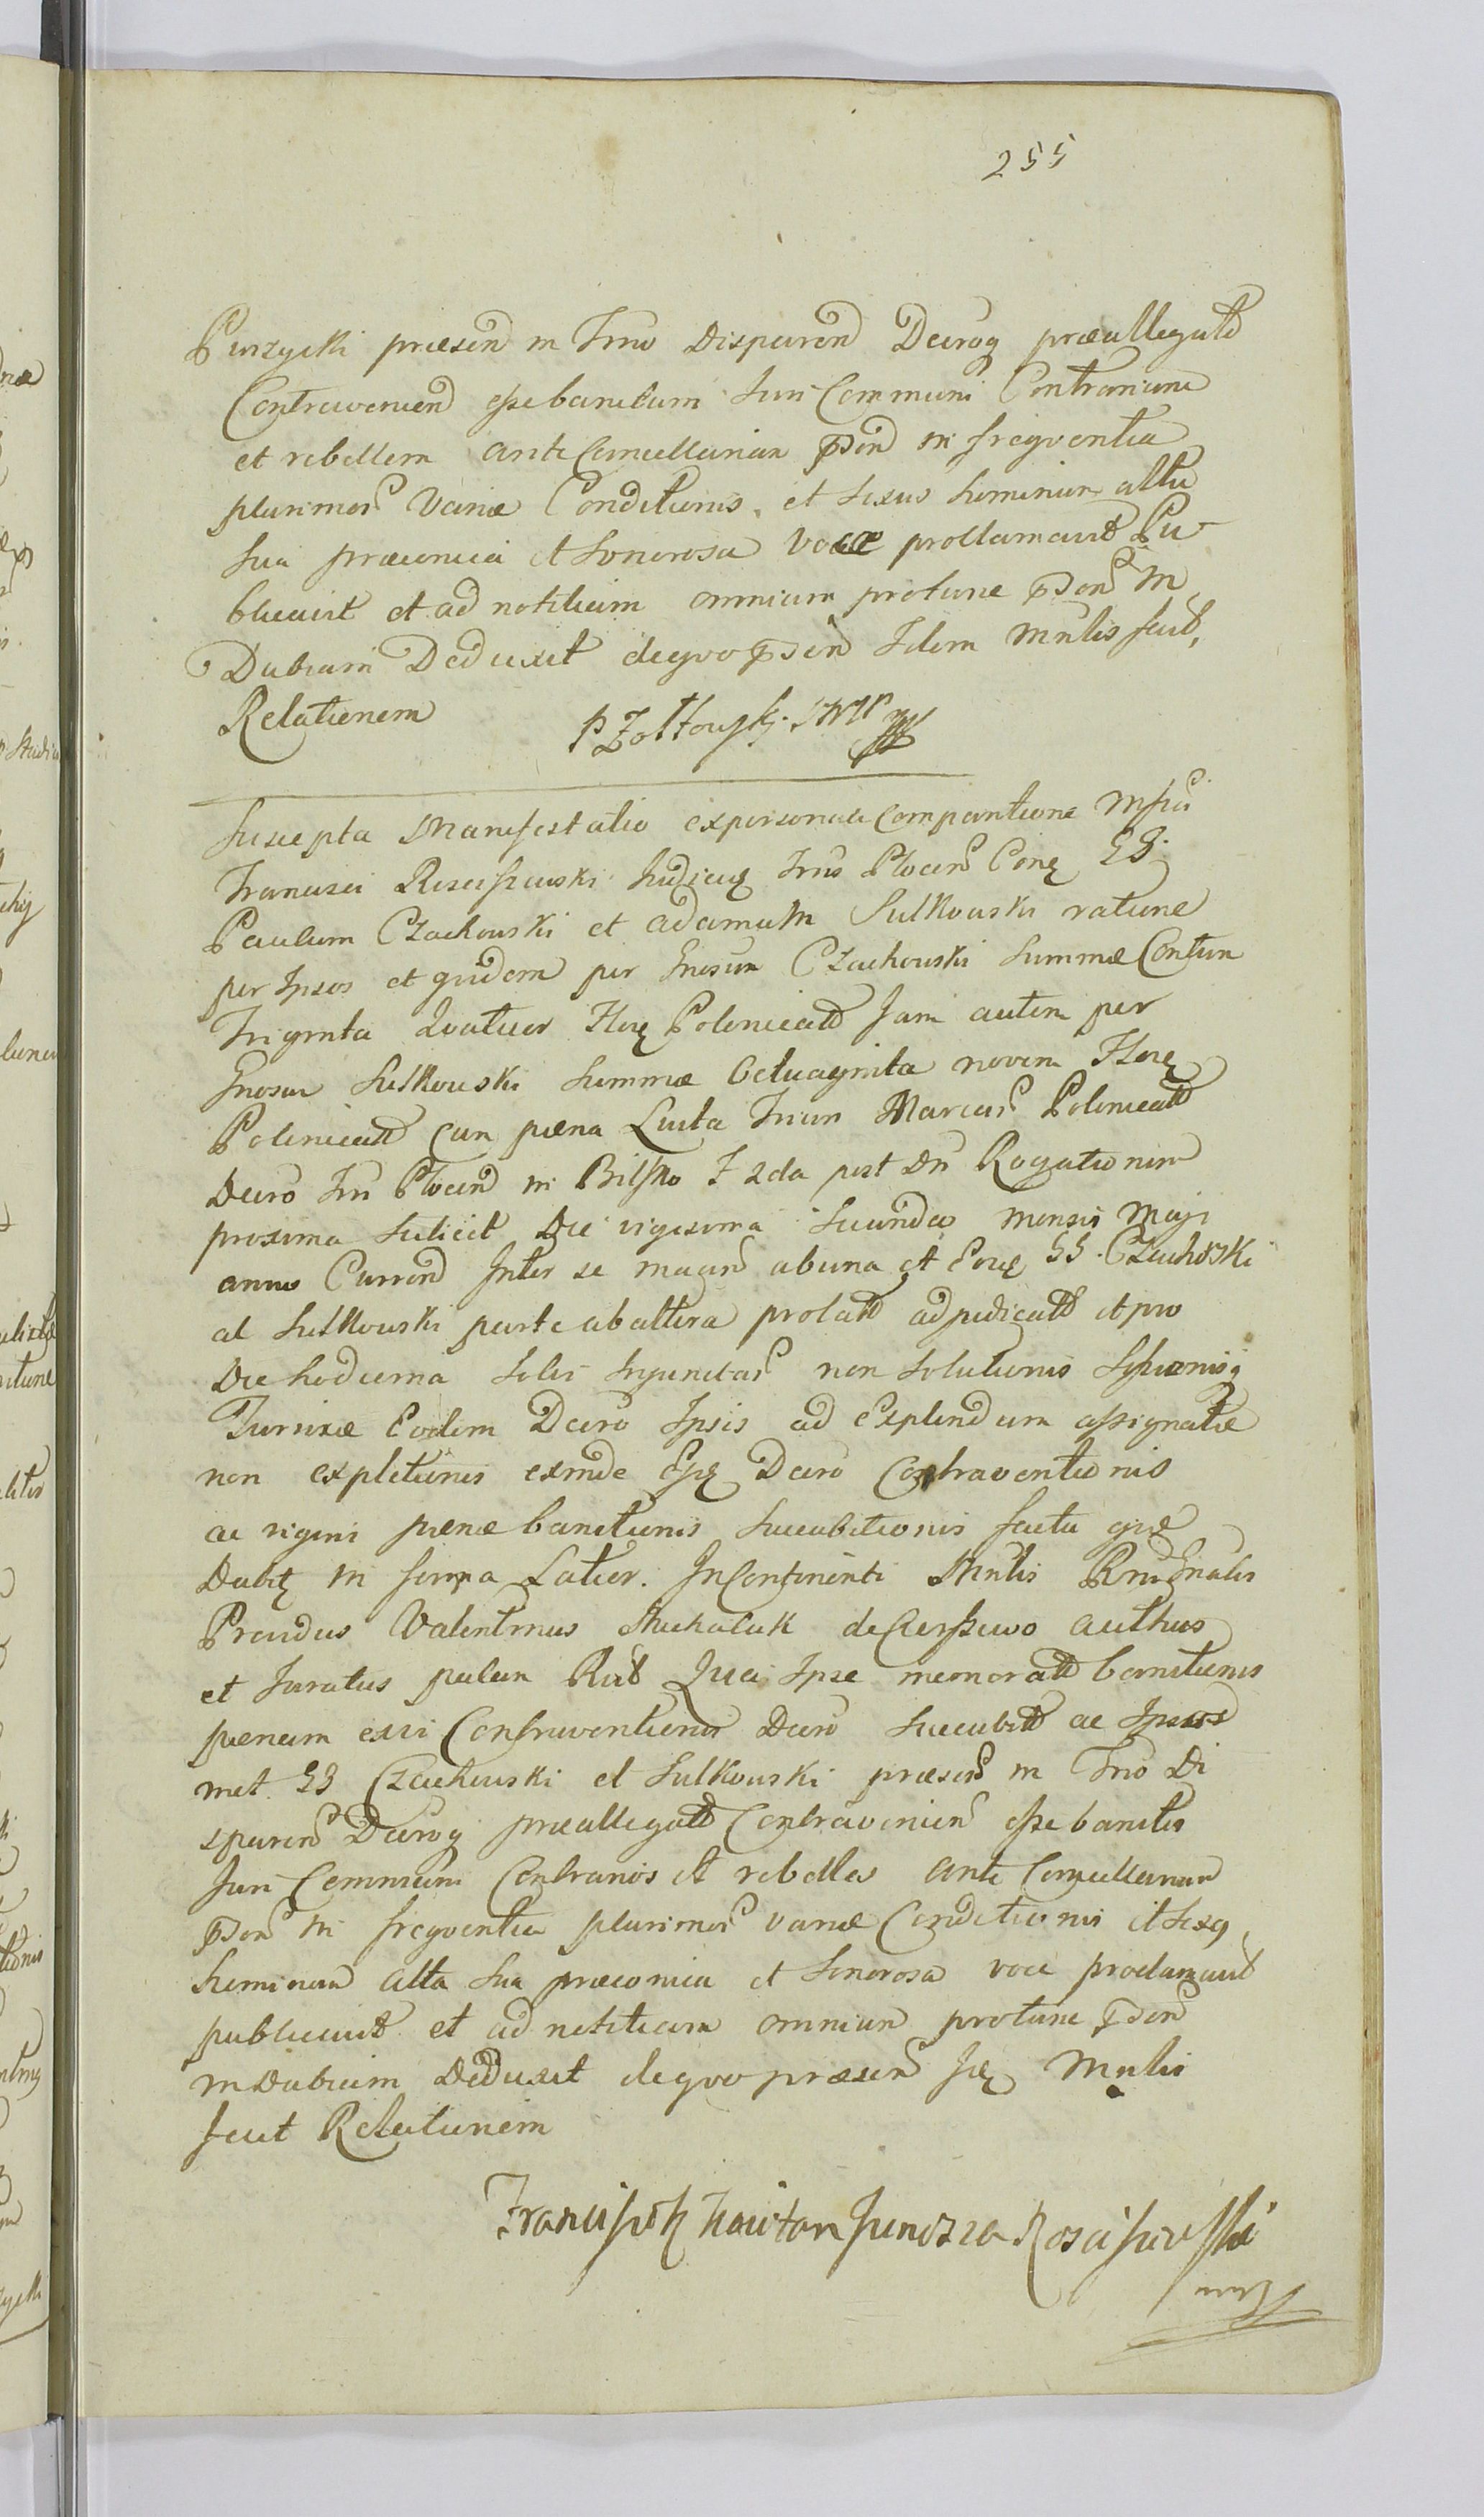 255
Purzycki praesen in Trno Disparen Decroq praeallegato
Contravenien esse banitum Juri Communi Contrarium
et rebellem ante Cancellariam pden in freqventia
plurimor Variae Conditionis et Sexus hominum alta
Sua praeconica et Sonorosa Voce proclamavit Pu
blicavit et ad notitiam omnium protunc pden in
Dubiam Deduxit deqvo pden Idem Mnlis fecit
Relationem
P Zołtowski
Suscepta Manifestatio ex personali Comparitione Mfici
Francisci Rosciszewski Judicis Trris Plocen Conq GG
Paulum Czachowski et adamum Sulkowski ratione
per Ipsos et qvidem per Gnosum Czachowski Summae Centum
Triginta Qvatuor Flor Polonicali Jam autem per
Gnosum Sulkowski Summae Octuaginta novem Flor
Polonicali cum paena Luita Trium Marcar Polonicali
Decro Trri Plocen in Bilsko F 2da post Dn Rogationum
proxima Scilicet Die vigesima Secunda mensis Maji
anno Curren Inter se macin ab una et Eosq GG Czachowski
at Sulkowski parte ab altera prolato adjudicato et pro
Die hodierna Solvi Injunctar non Solutionis
Juraae Eodem Decro Ipsis ad Explendum assignatae
non expletionis exinde Ejq Decro Contraventionis
ac vigini paenae banitionis Succubitionis facta qvae
Dabitq in forma Latior. In Continenti Mnlis Rni Gnalis
Providus Valentinus Michalak de authus
et Juratus palam Quia Ipse memorato banitionis
paenam exvi Contraventionis Decro Succubito ac Ipsos
met GG Czachowski et Sulkowski praesen in Trno Di
sparen Decroq praeallegato Contravenien esse banitos
Juri Communi Contrarios et rebelles ante Cancellariam
pden in freqventia plurimor variae Conditionis et Sexq
hominum alta Sua praeconica et Sonorosa voce proclamavit
publicavit et ad notitiam omnium protunc pden
in Dubiam Deduxit deqvo praesen Mnlis
fecit Relationem
Franciszek Kaietan Junosza Rosciszewski
mp